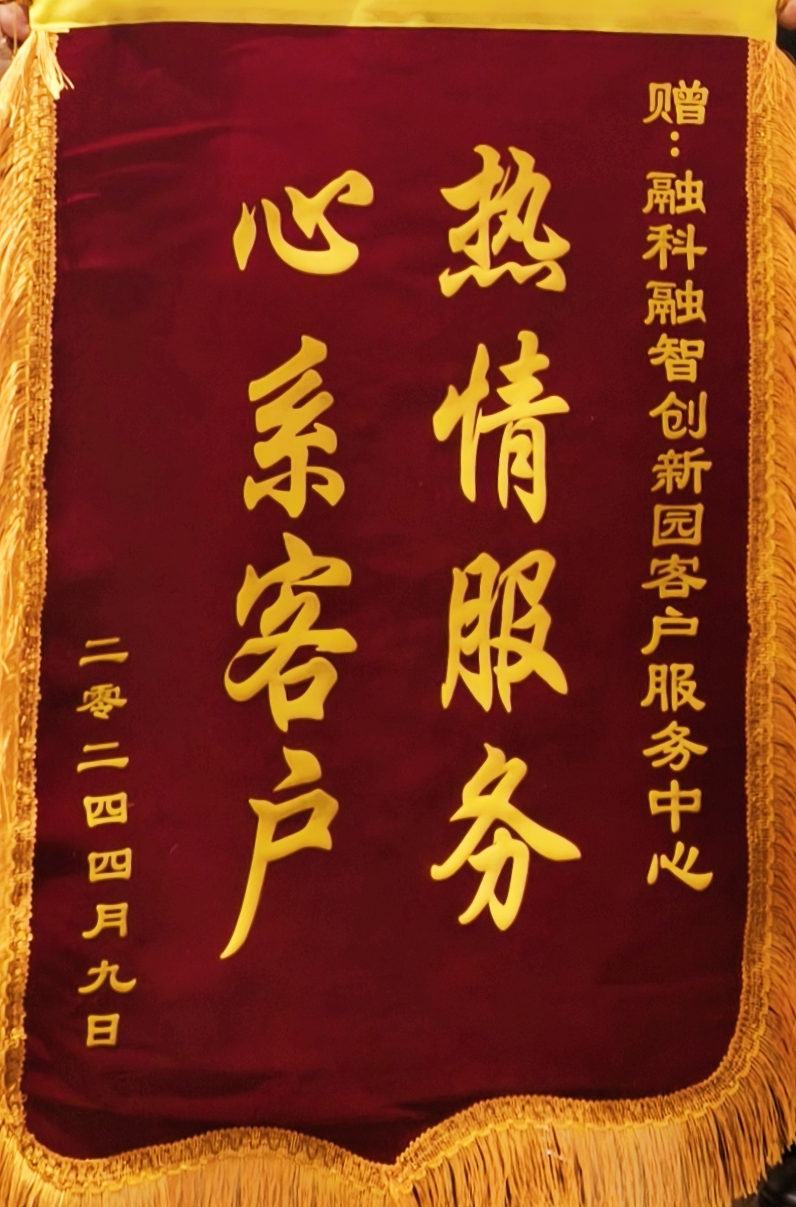 赠:融科融智创新园客户服务中心
热情服务
心系客户
二零二四四月九日